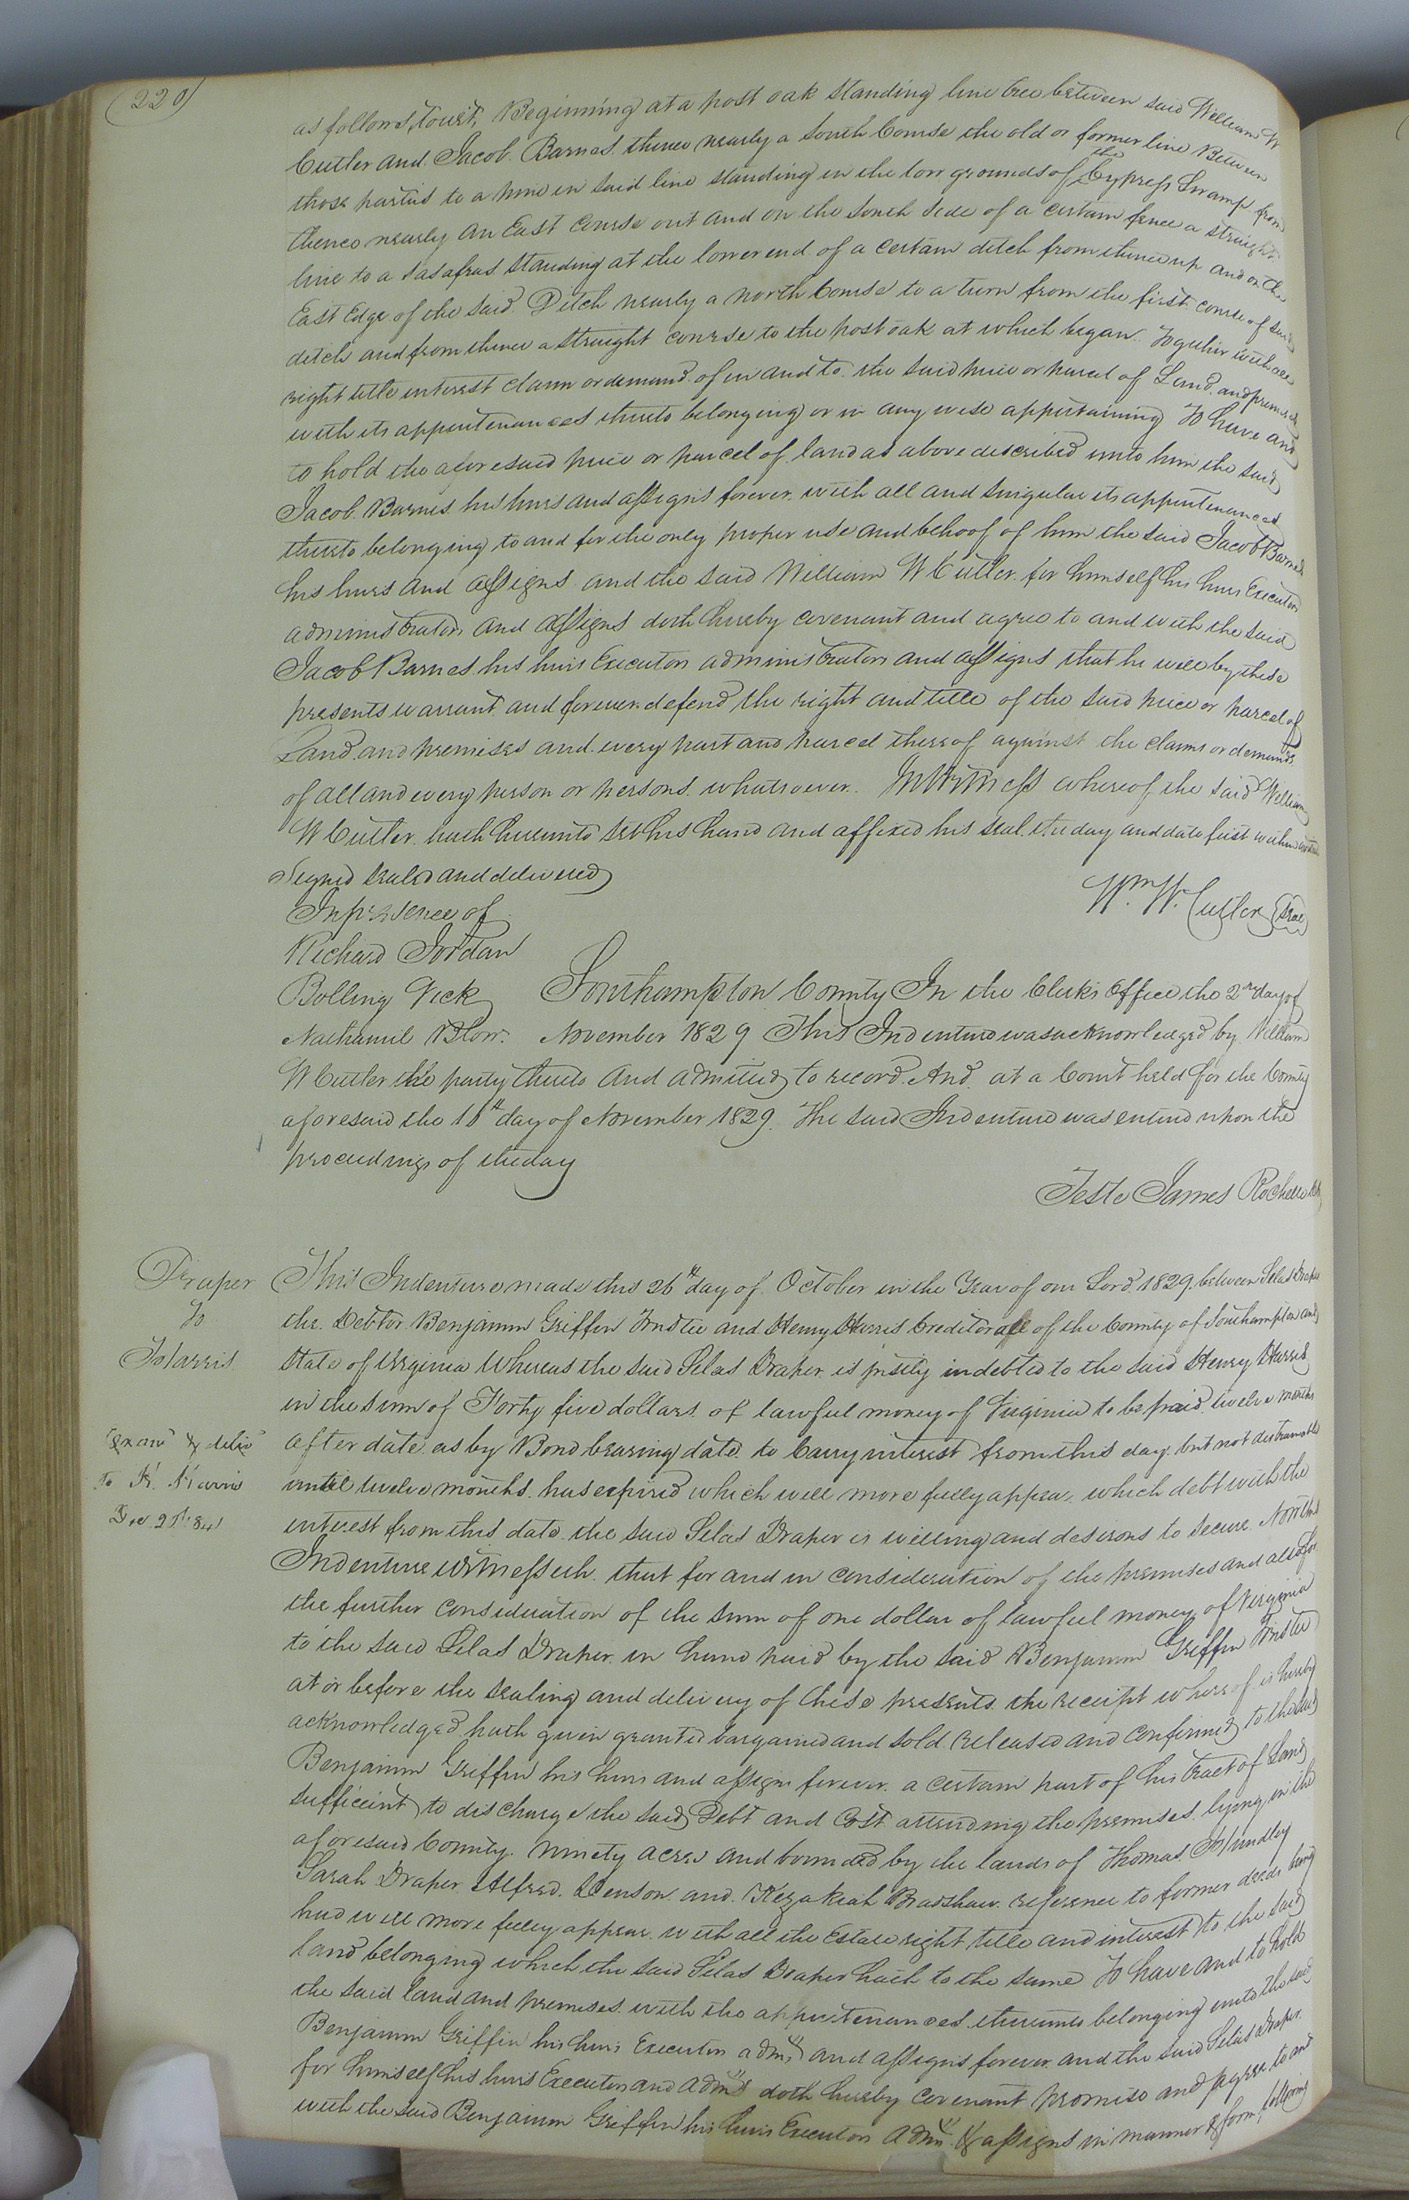 (220)
as follows, towit, Beginning at a post oak standing line tree between said William W
Cutler and Jacob Barnes thence nearly a South Course the old or former line Between
those parties to a pine in said line standing in the low grounds of the Cypress Swamp from
thence nearly an East course out and on the South side of a certain fence a straight
line to a sasafras standing at the lower end of a certain ditch from thence up and on the
East Edge of the said Ditch nearly a north Course to a turn from the first course of said
ditch and from thence a straight course to the post oak at which began. Together with all
right title interest claim or demand of in and to the said piece or parcel of Land and premises
with its appurtenances thereto belonging or in any wise appertaining To have and
to hold the aforesaid piece or parcel of land as above described unto him the said
Jacob Barnes his heirs and assigns forever with all and singular its appurtenances
thereto belonging to and for the only proper use and behoof of him the said Jacob Barnes
his heirs and assigns and the said William W Cutler for himself his heirs Executors
administrators and assigns doth hereby covenant and agree to and with the said
Jacob Barnes his heirs Executors administrators and assigns that he will by these
presents warrant and forever defend the right and title of the said piece or parcel of
Land and premises and every part and parcel thereof against the claims or demands
of all and every person or persons whatsoever. In Witness whereof the said William
W Cutler hath hereunto set his hand and affixed his seal the day and date first within
Signed sealed and delivered
In presence of
Wm. W. Cutler (Seal)
Richard Jordan
Bolling Vick
Nathaniel Blow.
Southampton County In the Clerks Office the 2nd day of
November 1829 This Indenture was acknowledged by William
W Cutler the party thereto and admitted to record. And at a Court held for the County
aforesaid the 18th day of November 1829. The said Indenture was entered upon the
proceedings of the day
Teste James Rochelle
Draper
To
Harris
Exam'd & deliv'd
To H. Harris
This Indenture made this 26th day of October in the Year of our Lord 1829, between Silas Draper
the Debtor Benjamin Griffin Trustee and Henry Harris Creditor all of the County of Southampton and
State of Virginia Whereas the said Silas Draper is justly indebted to the said Henry Harris
in the sum of Forty five dollars of lawful money of Virginia to be paid twelve months
after date as by Bond bearing date to Carry interest from this day but not distrainable
until twelve months has expired which will more fully appear which debt with the
interest from this date the said Silas Draper is willing and desirous to secure
Indenture witnesseth that for and in consideration of the premises and also for
the further consideration of the sum of one dollar of lawful money of Virginia
to the said Silas Draper in hand paid by the said Benjamin Griffin Trustee
at or before the sealing and delivery of these presents the receipt whereof is hereby
acknowledged hath given granted bargained and sold released and confirmed to the said
Benjamin Griffin his heirs and assigns forever a certain part of his tract of Land
sufficient to discharge the said Debt and Cost attending the premises lying in the
aforesaid County. Ninety acres and bounded by the lands of Thomas Hundley
Sarah Draper Alfred Denson and Kezakiah Bradshaw reference to former deeds being
had will more fully appear with all the Estate right title and interest to the said
land belonging which the said Silas Draper hath to the same To have and to hold
the said land and premises with the appurtenances thereunto belonging unto the said
Benjamin Griffin his heirs Executors adm's and assigns forever and the said Silas Draper
for himself his heirs Executors and adm's doth hereby covenant promise and agree to and
with the said Benjamin Griffin his heirs Executors adm's & assigns in manner & form following